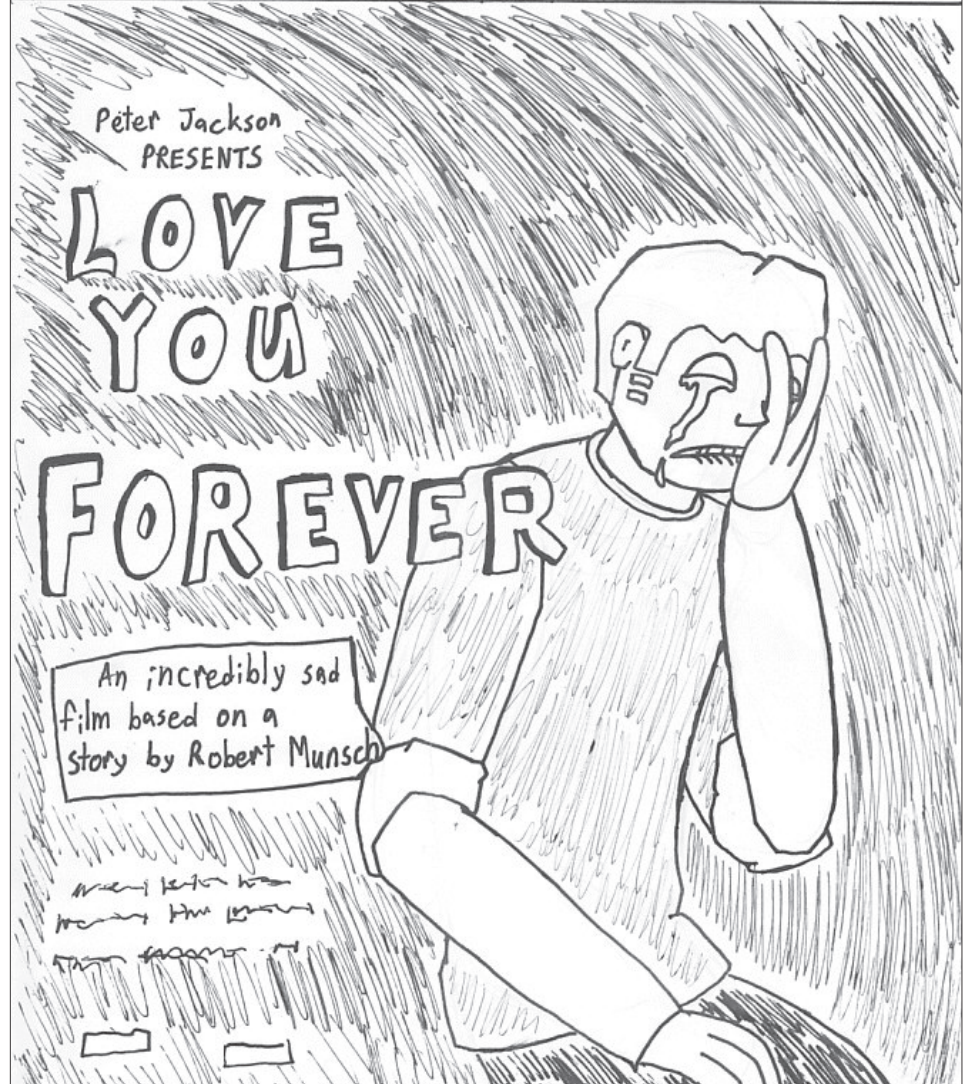 Peter Jackson
PRESENTS
LOVE
YOU
FOREVER
An incredibly sad
film based on a
story by Robert Munsch